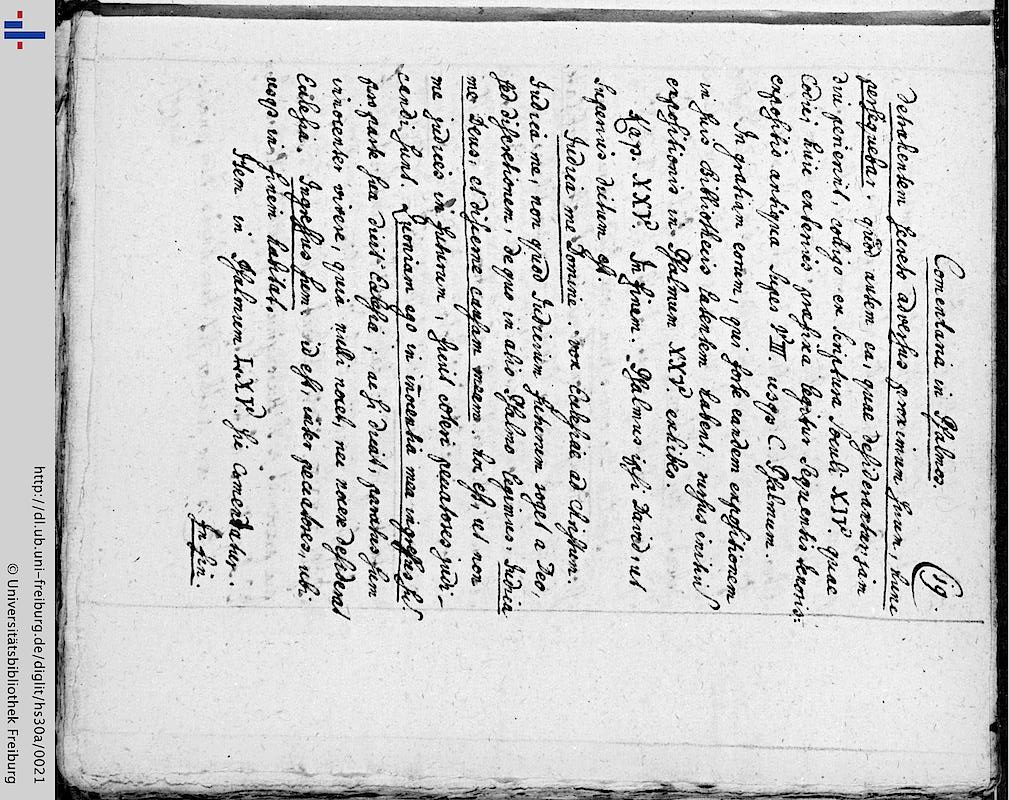 Comentaria in Psalmos. 19.
detrahentem secreto adversus proximum suum, hunc
persequebar. quod autem ea, quae desiderantur, jam
dni penierit, colligo ex scriptura saeculi XIV. quae
Codici huic extensis praefixa legitur sequentis tenoris:
expositio antiqua super VIII usque C. Psalmum.
In gratiam eorum, qui forte eandem expositionem
in suis Bibliothecis latentem habent, rursus initium
expositionis in Psalmum XXV. exhibeo.
Kap. XXV. In finem. Psalmus ipsi David, ut
superius dictum est.
Judica me Domine. vox Ecclesiae ad Christum.
Judica me, non quod Judicium futurum roget a Deo,
sed discretionem, de quo in alio Psalmo legimus. Judica
me Deus, et discerne causam meam. hoc est, ut non
me judices in futurum, sicut coteri peccatores judi-
candi sunt. Quoniam ego in inocentia mea ingressus su[m]
pro parte sua dicit Ecclesia, ac si dicat, paratus sum
innocenter vivere, quia nulli nocet, nec nocere desiderat
Ecclesia. Ingressus sum. id est, inter peccatores, ubi
usque in finem habitat.
Item in Psalmum LXV. sic comentatur.
In fin
http://dl.ub.uni-freiburg.de/diglit/hs30a/0021
© Universitätsbibliothek Freiburg